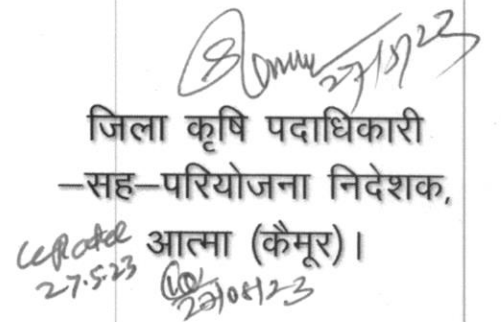 27/5/23
जिला कृषि पदाधिकारी
–सह–परियोजना निदेशक,
आत्मा (कैमूर)।
27.5.23
27/05/23